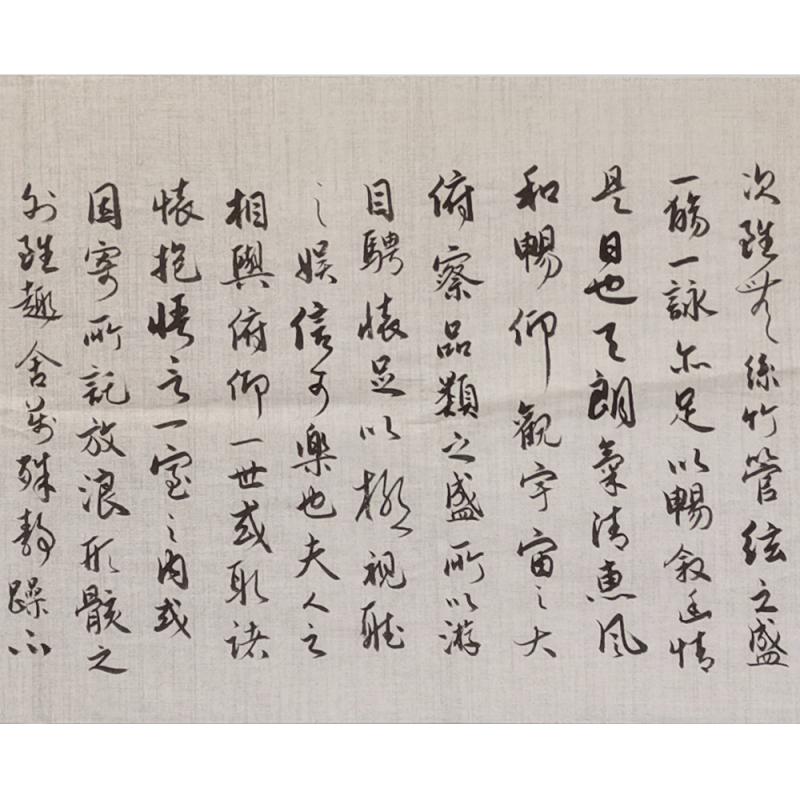 次雖無絲竹管絃之盛
一觴一詠亦足以暢敘幽情
是日也天朗氣清惠風
和暢仰觀宇宙之大
俯察品類之盛所以游
目騁懷足以極視聽
之娛信可樂也夫人之
相與俯仰一世或取諸
懷抱悟言一室之內或
因寄所託放浪形骸之
外雖趣舍萬殊靜躁不